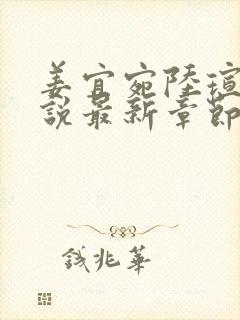 姜宜宛陸瑄
說最新章節
錢兆華